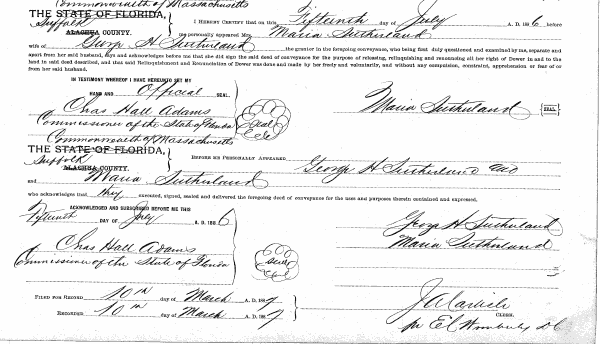 Commonwealth of Massachusetts
THE STATE OF FLORIDA,
Suffolk
ALACHUA COUNTY.
I HEREBY CERTIFY that on this Fifteenth day of July A. D. 188 6 before
me personally appeared Mrs. Maria Sutherland
wife of George H Sutherland the grantor in the foregoing conveyance, who being first duly questioned and examined by me, separate and
apart from her said husband, says and acknowledges before me that she did sign the said deed of conveyance for the purpose of releasing, relinquishing and renouncing all her right of Dower in and to the
land in said deed described, and that said Relinquishment and Renunciation of Dower was done and made by her freely and voluntarily, and without any compulsion, constraint, apprehension or fear of or
from her said husband.
IN TESTIMONY WHEREOF I HAVE HEREUNTO SET MY
HAND AND Official SEAL.
Chas Hall Adams
Commissioner of the State of Florida
Seal
Maria Sutherland SEAL
Commonwealth of Massachusetts
THE STATE OF FLORIDA,
Suffolk
ALACHUA COUNTY.
BEFORE ME PERSONALLY APPEARED George H Sutherland
and Maria Sutherland
who acknowledges that they executed, signed, sealed and delivered the foregoing deed of conveyance for the uses and purposes therein contained and expressed.
ACKNOWLEDGED AND SUBSCRIBED BEFORE ME THIS
Fifteenth DAY OF July A. D. 188 6
George H Sutherland
Maria Sutherland
Chas Hall Adams
Commissioner of the State of Florida
Seal
FILED FOR RECORD 10th day of March A. D. 188 7
RECORDED 10th day of March A. D. 188 7
J A Carlisle
CLERK.
per E C Wimberly DC